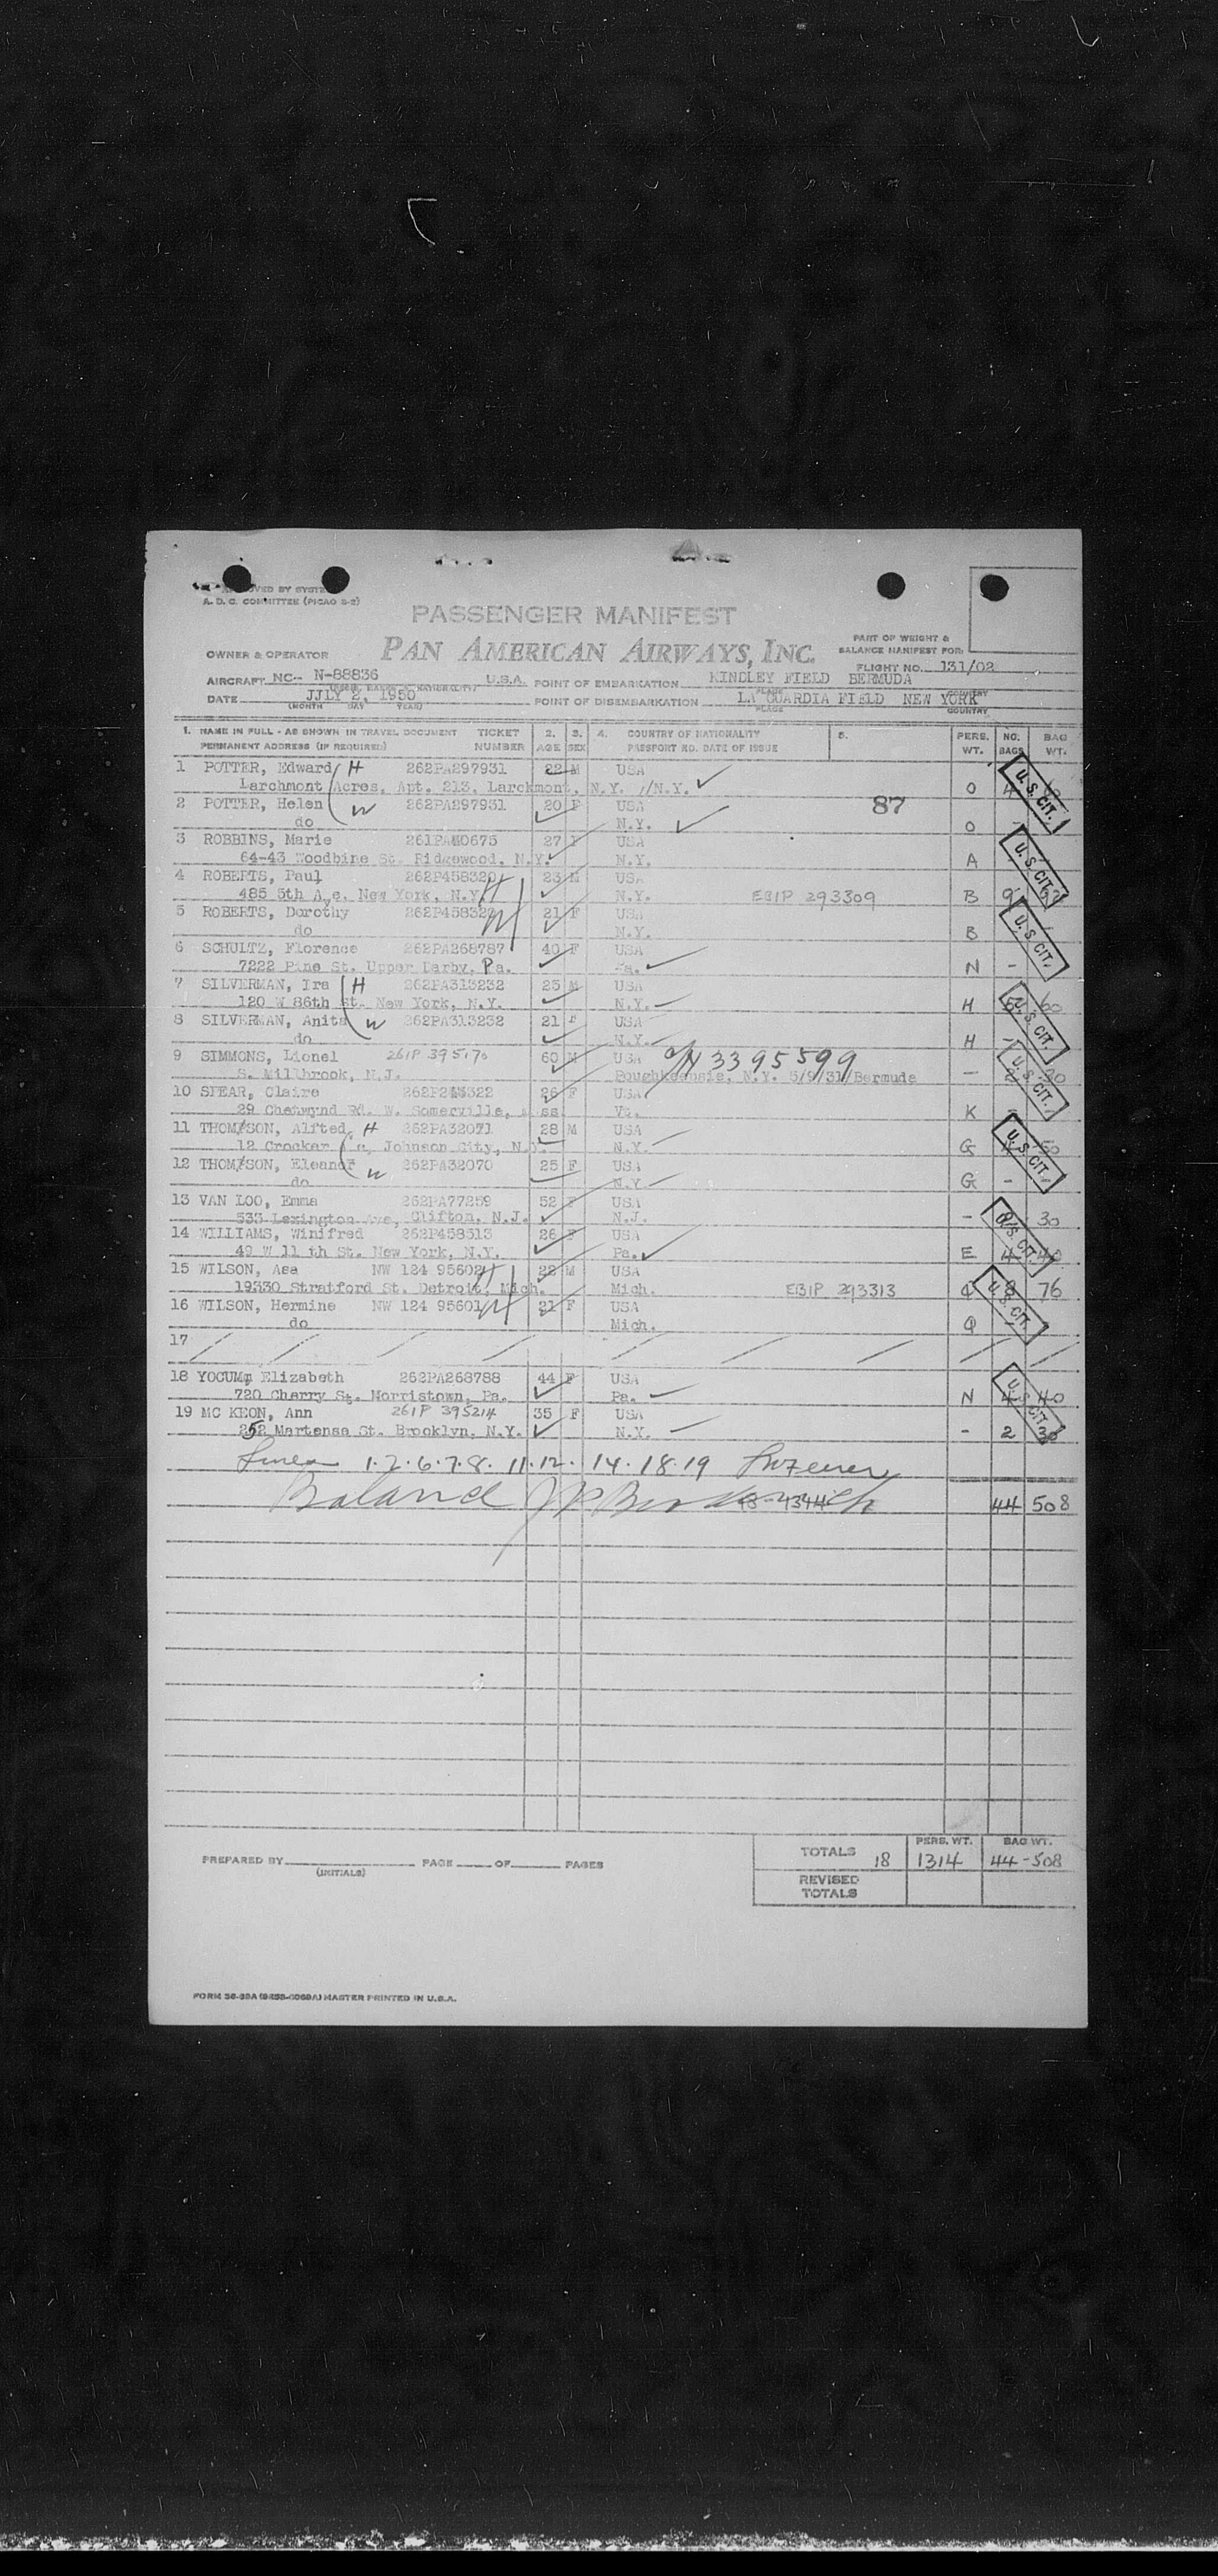 APPROVED BY SYSTEM
A. D. C. COMMITTEE (PICAO 2-2)
PASSENGER MANIFEST
PAN AMERICAN AIRWAYS, INC.
PART OF WEIGHT &
BALANCE MANIFEST FOR:
OWNER & OPERATOR
FLIGHT NO. 131/02
AIRCRAFT NC-- N-88836 U.S.A. POINT OF EMBARKATION KINDLEY FIELD BERMUDA
DATE JJLY 2, 1950 POINT OF DISEMBARKATION LA GUARDIA FIELD NEW YORK
(MONTH DAY YEAR) PLACE COUNTRY
1. NAME IN FULL - AS SHOWN IN TRAVEL DOCUMENT TICKET 2. 3. 4. COUNTRY OF NATIONALITY 5. PERS. NO. BAG
PERMANENT ADDRESS (IF REQUIRED) NUMBER AGE SEX PASSPORT NO. DATE OF ISSUE WT. BAGS WT.
1 POTTER, Edward H 262PA297931 22 M USA
Larchmont Acres, Apt. 213, Larchmont, N.Y. //N.Y. O U.S. CIT.
2 POTTER, Helen W 262PA297931 20 F USA 87
do N.Y. O -
3 ROBBINS, Marie 27 F USA
64-43 Woodbine St. Ridgewood, N.Y. N.Y. A U.S. CIT.
4 ROBERTS, Paul 262P458320 23 M USA
485 5th Ave. New York, N.Y. H N.Y. EBIP 293309 B 9
5 ROBERTS, Dorothy W 21 F USA
do N.Y. B U.S. CIT.
6 SCHULTZ, Florence 262PA268787 40 F USA
7222 Pine St. Upper Darby, Pa. Pa. N -
7 SILVERMAN, Ira H 262PA313232 25 M USA
120 W 86th St. New York, N.Y. N.Y. H 60 U.S. CIT.
8 SILVERMAN, Anita W 262PA313232 21 F USA
do N.Y. H -
9 SIMMONS, Lionel 60 M USA 3395599
S. Millbrook, N.J. Poughkeepsie, N.Y. 5/9/31/Bermuda - U.S. CIT.
10 SPEAR, Claire 26 F USA
29 Chetwynd Rd. W. Somerville, Mass. K -
11 THOMSON, Alfted H 262PA32071 28 M USA
12 Crocker Johnson City, N.Y. N.Y. G 50 U.S. CIT.
12 THOMSON, Eleanor W 262PA32070 25 F USA
do N.Y G -
13 VAN LOO, Emma 262PA77259 52 F USA
533 Lexington Ave, Clifton, N.J. N.J. - 30
14 WILLIAMS, Winifred 262P458513 26 F USA
49 W 11 th St. New York, N.Y. Pa. E 4 40 U.S. CIT.
15 WILSON, Asa NW 124 95602 H 22 M USA
19330 Stratford St. Detroit, Mich. Mich. EBIP 293313 Q 8 76 U.S. CIT.
16 WILSON, Hermine NW 124 95601 W 21 F USA
do Mich. Q
17
18 YOCUM, Elizabeth 262PA268788 44 F USA
720 Cherry St. Norristown, Pa. Pa. N 4 40 U.S. CIT.
19 MC KEON, Ann 261P 395214 35 F USA
252 Martense St. Brooklyn, N.Y. N.Y. - 2 30
Lines 1.2.6.7.8. 11.12. 14.18.19
Baland 44 508
PREPARED BY PAGE OF PAGES
(INITIALS)
PERS. WT. BAG WT.
TOTALS 18 1314 44-508
REVISED
TOTALS
FORM 36-39A MASTER PRINTED IN U.S.A.